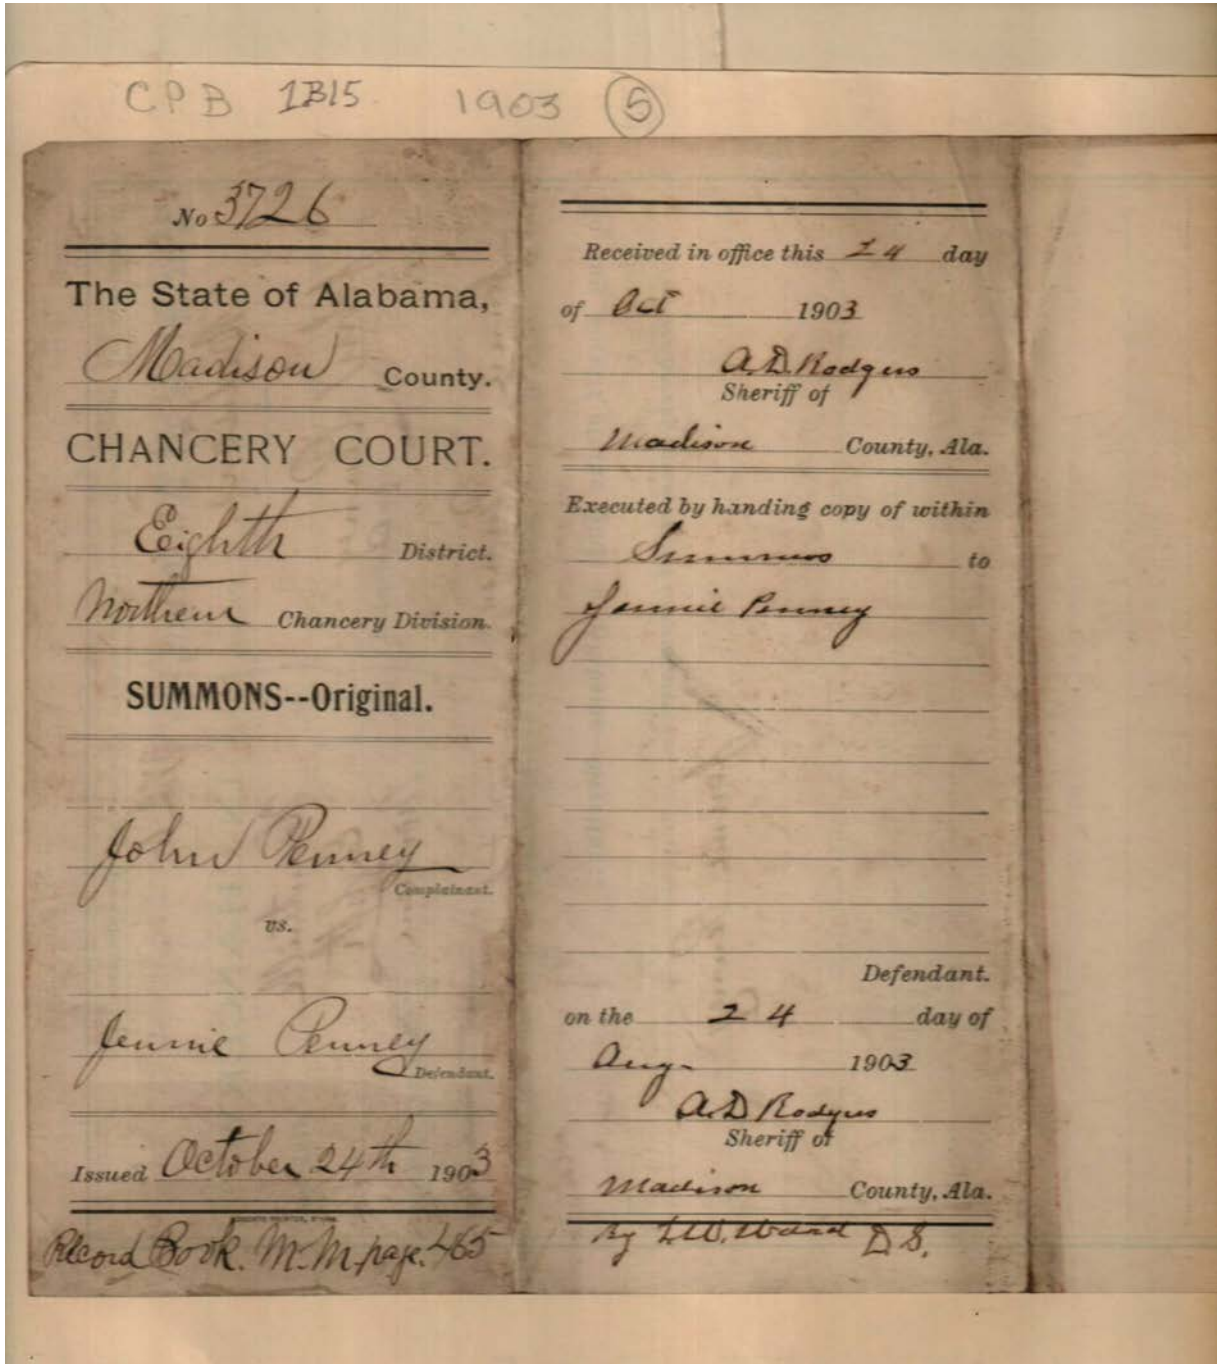 CPB 1B15 1903 5
No 3726
The State of Alabama,
Madison County.
CHANCERY COURT.
Eighth District.
Northern Chancery Division.
SUMMONS--Original.
John Penney
Complainant.
vs.
Jennie Penney
Defendant.
Issued October 24th 1903
Record Book. M.M. page. 465
Received in office this 24 day
of Oct 1903
A.D. Rodgers
Sheriff of
Madison County, Ala.
Executed by handing copy of within
Summons to
Jennie Penney
Defendant.
on the 24 day of
Aug- 1903
A.D Rodgers
Sheriff of
Madison County, Ala.
By Ward D.S.